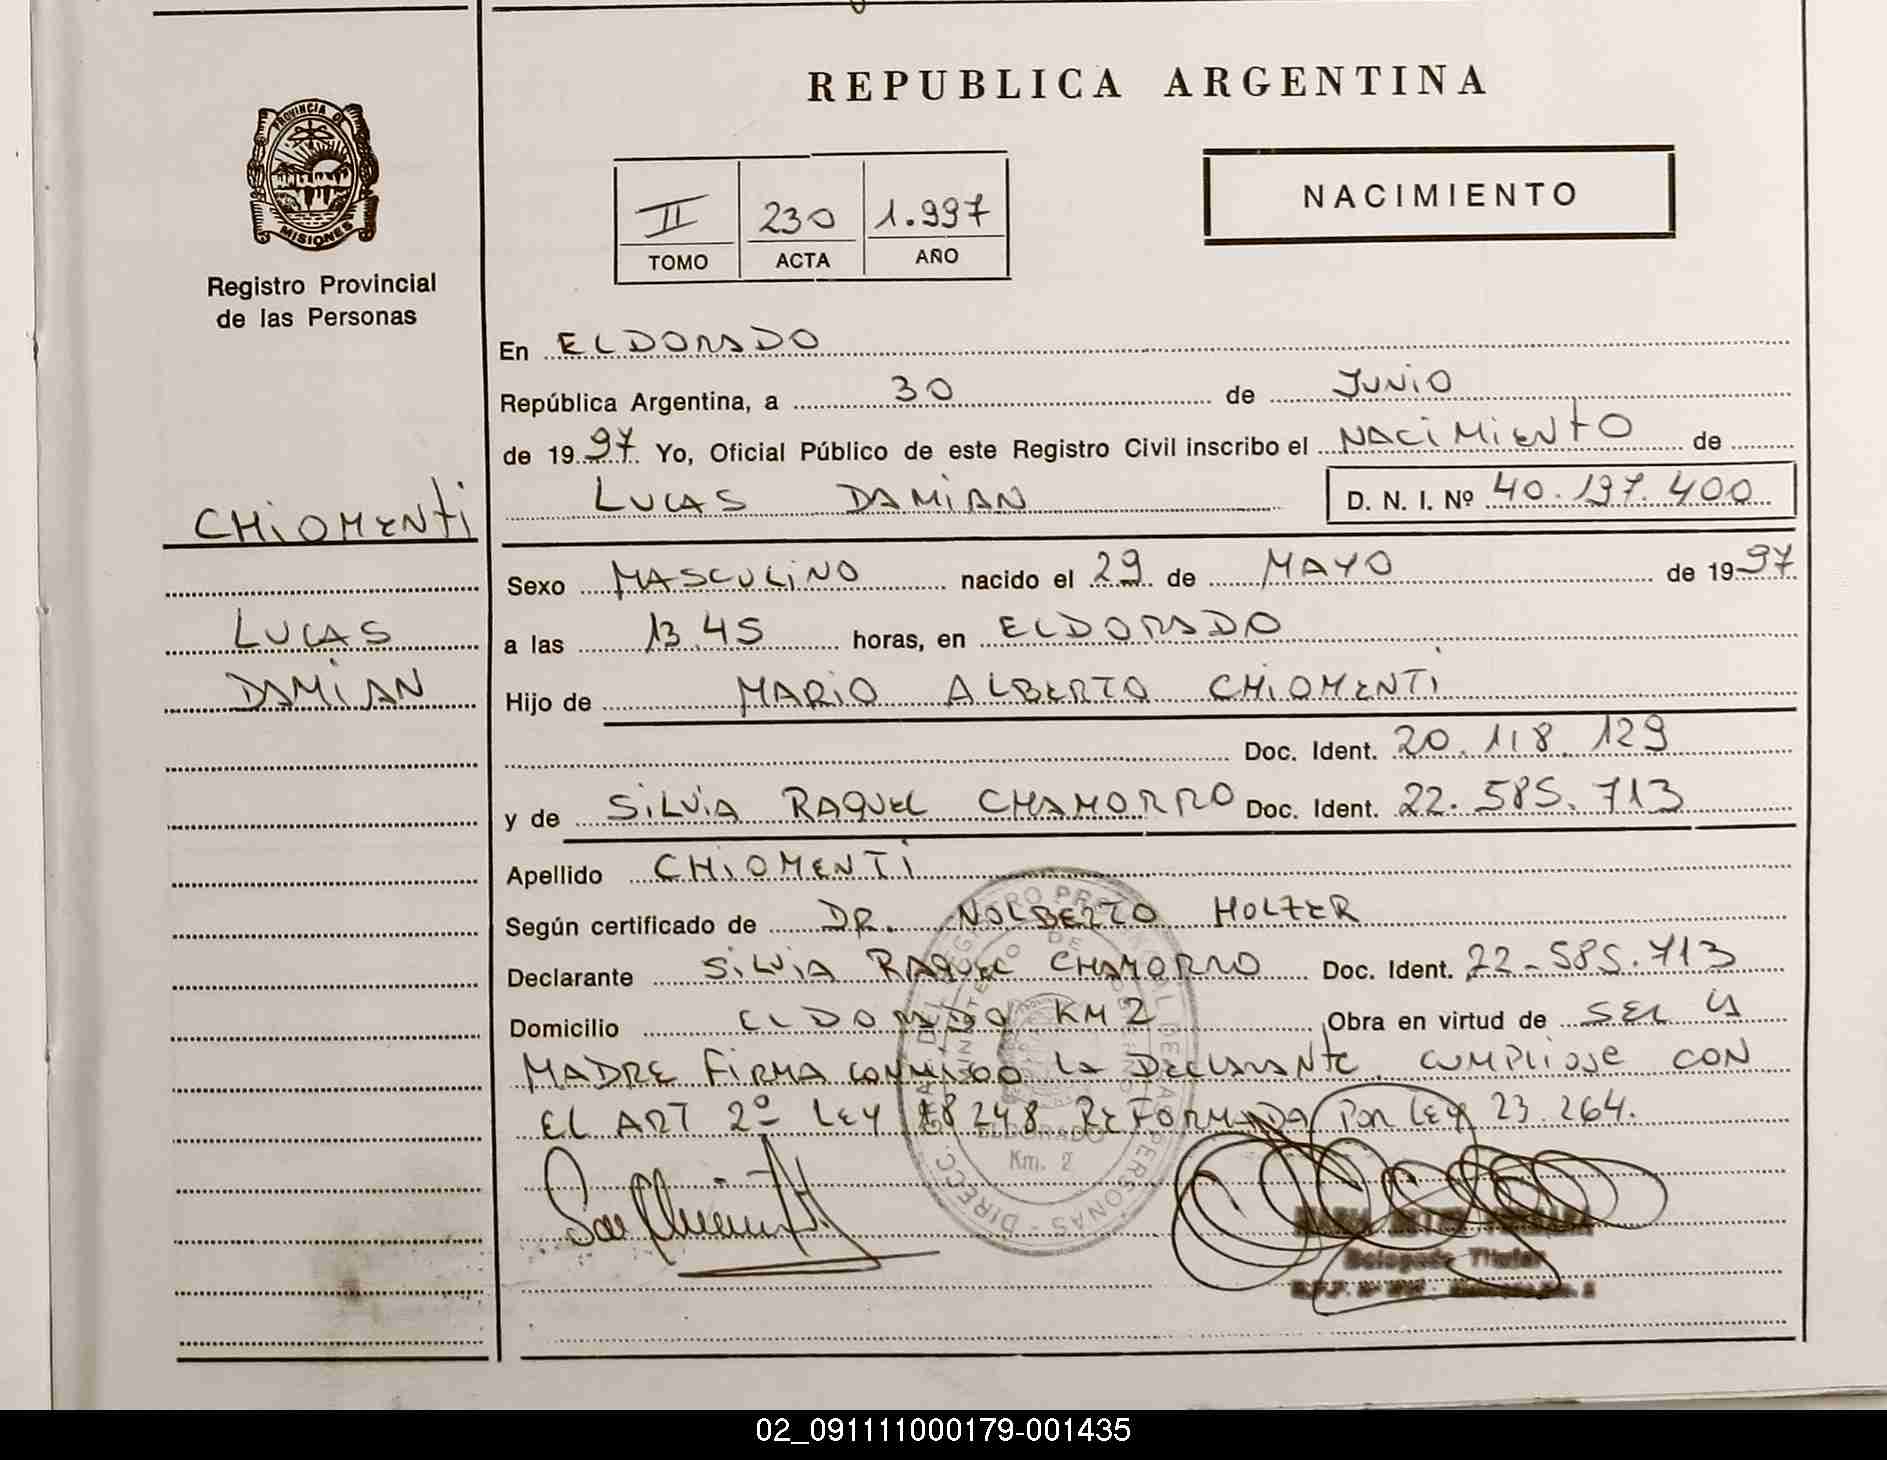 REPUBLICA ARGENTINA
PROVINCIA DE
MISIONES
Registro Provincial
de las Personas
II 230 1.997
TOMO ACTA AÑO
NACIMIENTO
En ELDORADO
República Argentina, a 30 de JUNIO
de 1997 Yo, Oficial Público de este Registro Civil inscribo el NACIMIENTO de
LUCAS DAMIAN D. N. I. Nº 40.197.400
CHIOMENTI
LUCAS
DAMIAN
Sexo MASCULINO nacido el 29 de MAYO de 1997
a las 13.45 horas, en ELDORADO
Hijo de MARIO ALBERTO CHIOMENTI
Doc. Ident. 20.118.129
y de SILVIA RAQUEL CHAMORRO Doc. Ident. 22.585.713
Apellido CHIOMENTI
Según certificado de DR. NOLBERTO HOLZER
Declarante SILVIA RAQUEL CHAMORRO Doc. Ident. 22-585.713
Domicilio ELDORADO KM 2 Obra en virtud de SER LA
MADRE FIRMA CONMIGO LA DECLARANTE CUMPLIOSE CON
EL ART 2º LEY 18248 REFORMADA POR LEY 23.264.
ELDORADO
Km. 2
PERSONAS - DIRECC
Delegado Titular
02_091111000179-001435